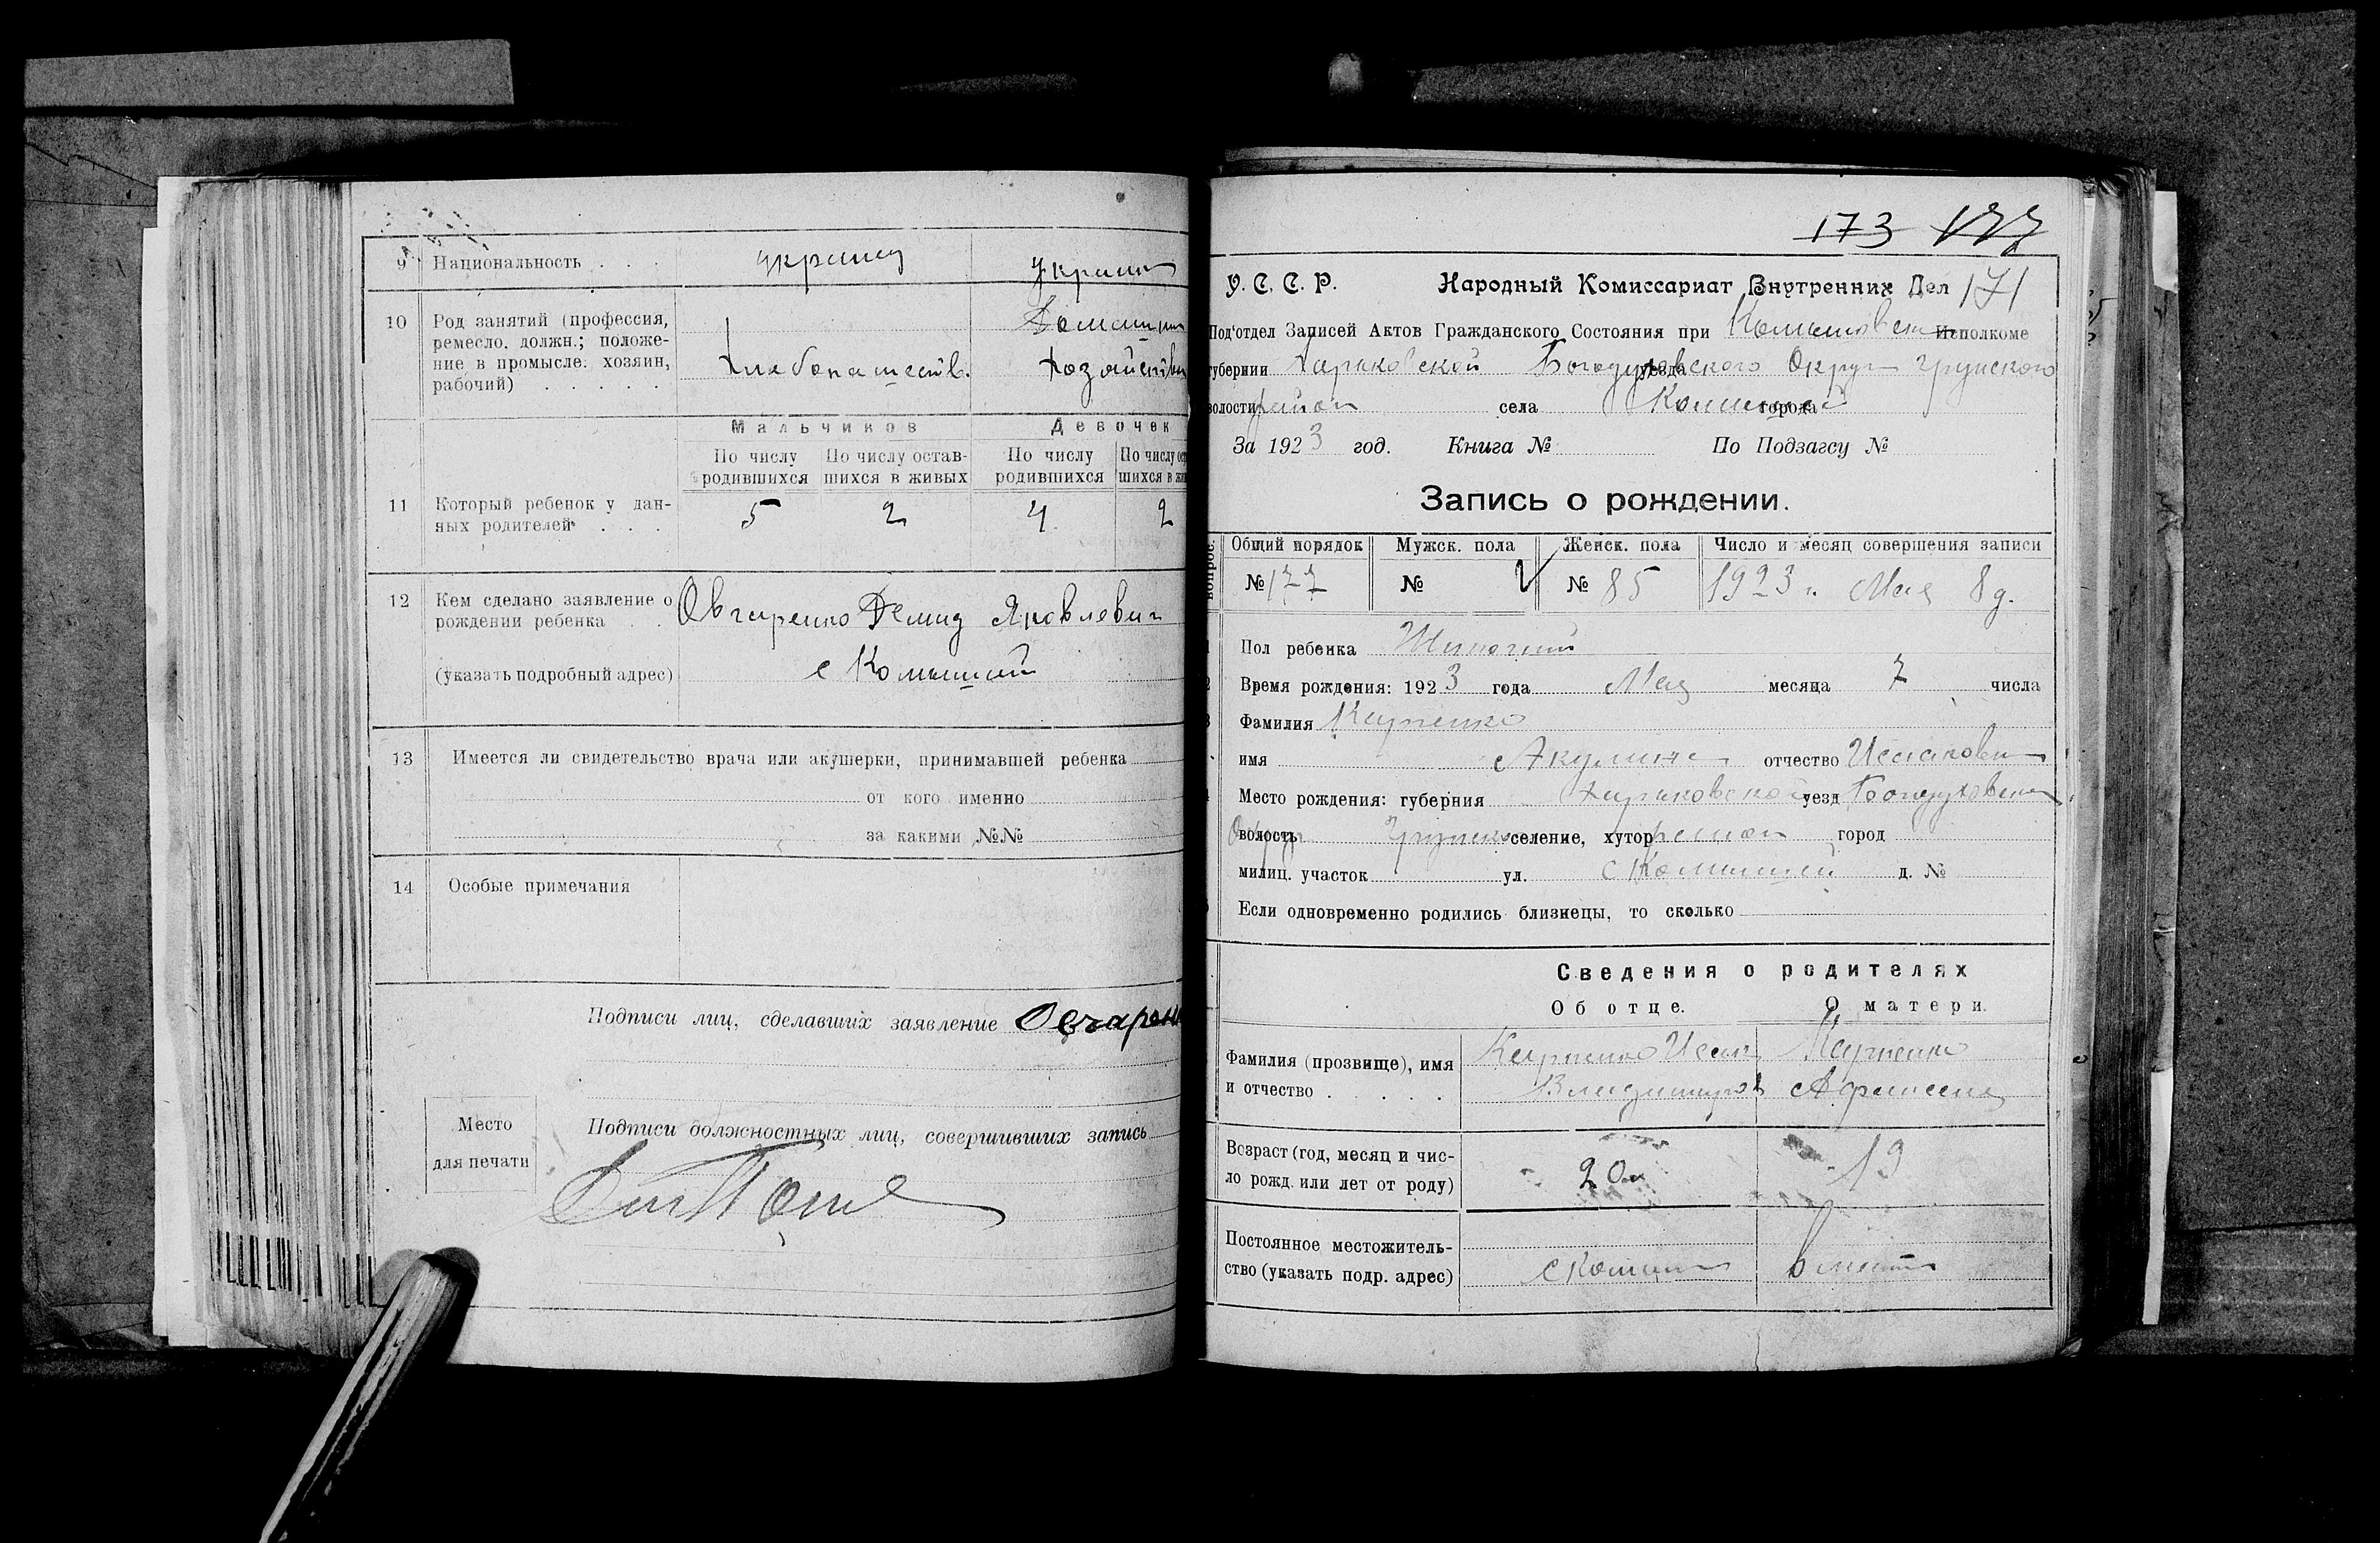 9 Национальность . . . украинец украин
10 Род занятий (профессия,
ремесло, должн.; положе-
ние в промысле: хозяин,
рабочий) . . . . .
Хлебопашеств.
Домашни
хозяйство
Мальчиков Девочек
По числу родившихся
По числу остав-шихся в живых
По числу родившихся
По числу ост
шихся в жи
11 Который ребенок у дан-
ных родителей . . .
5 2 4 2
12 Кем сделано заявление о
рождении ребенка . .
Овчаренко Демид Яковлевич
(указать подробный адрес) с Комышей
13 Имеется ли свидетельство врача или акушерки, принимавшей ребенка
от кого именно
за какими №№
14 Особые примечания
Подписи лиц, сделавших заявление Овчарен
Место
для печати
Подписи должностных лиц, совершивших запись
173 177
У. С. С. Р. Народный Комиссариат Внутренних Дел 171
Под'отдел Записей Актов Гражданского Состояния при Комышовском Исполкоме
губернии Харьковской Богодуховского уезда Округ Грунского
волости район села Комышей города
За 1923 год. Книга № По Подзагсу №
Запись о рождении.
вопрос.
Общий порядок Мужск. пола Женск. пола Число и месяц совершения записи
№ 177 № № 85 1923 г. Мая 8 д.
Пол ребенка Женский
Время рождения: 1923 года Мая месяца 7 числа
Фамилия Карпенко
имя Акулина отчество Исааковн
Место рождения: губерния Харьковской уезд Богодуховский
волость Округ Грунск селение, хутор район город
милиц. участок ул. с Комышей д. №
Если одновременно родились близнецы, то сколько
Сведения о родителях
Об отце. О матери.
Фамилия (прозвище), имя
и отчество . . . . .
Карпенко Исак
Владимиров
Карпенко
Афанасия
Возраст (год, месяц и чис-
ло рожд. или лет от роду)
20 19
Постоянное местожитель-
ство (указать подр. адрес)
с Комыш вместе